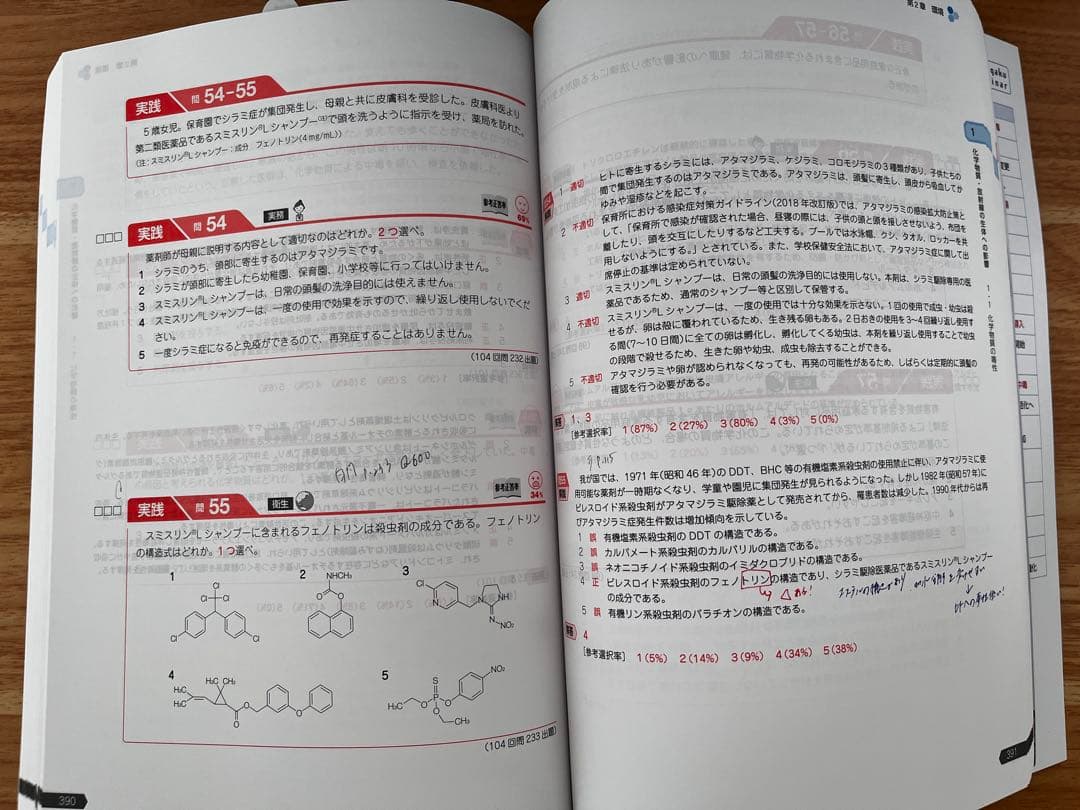 実践 問 54-55
5歳女児。保育園でシラミ症が集団発生し、母親と共に皮膚科を受診した。皮膚科医より
第二類医薬品であるスミスリン®Lシャンプー(注)で頭を洗うように指示を受け、薬局を訪れた。
(注:スミスリン®Lシャンプー:成分 フェノトリン(4mg/mL))
実践 問 54 実務 参考正答率 69%
薬剤師が母親に説明する内容として適切なのはどれか。2つ選べ。
1 シラミのうち、頭部に寄生するのはアタマジラミです。
2 シラミが頭部に寄生したら幼稚園、保育園、小学校等に行ってはいけません。
3 スミスリン®Lシャンプーは、日常の頭髪の洗浄目的には使えません。
4 スミスリン®Lシャンプーは、一度の使用で効果を示すので、繰り返し使用しないでくだ
さい。
5 一度シラミ症になると免疫ができるので、再発症することはありません。
(104回問232出題)
実践 問 55 衛生 参考正答率 34%
スミスリン®Lシャンプーに含まれるフェノトリンは殺虫剤の成分である。フェノトリン
の構造式はどれか。1つ選べ。
1 2 3
Cl Cl Cl Cl Cl
NHCH₃ O O
Cl N N NH N-NO₂
4 5
H₃C H₃C H₃C CH₃ O O O
H₃C O P S O O CH₃ NO₂
(104回問233出題)
390
第2章 環境
1
化学物質・放射線の生体への影響
1・1 化学物質の毒性
1 適切 ヒトに寄生するシラミには、アタマジラミ、ケジラミ、コロモジラミの3種類があり、子供たちの
間で集団発生するのはアタマジラミである。アタマジラミは、頭髪に寄生し、頭皮から吸血してか
ゆみや湿疹などを起こす。
2 不適切 保育所における感染症対策ガイドライン(2018年改訂版)では、アタマジラミの感染拡大防止策と
して、「保育所で感染が確認された場合、昼寝の際には、子供の頭と頭を接しさせないよう、布団を
離したり、頭を交互にしたりするなど工夫する。プールでは水泳帽、クシ、タオル、ロッカーを共
用しないようにする。」とされている。また、学校保健安全法において、アタマジラミ症に関して出
席停止の基準は定められていない。
3 適切 スミスリン®Lシャンプーは、日常の頭髪の洗浄目的には使用しない。本剤は、シラミ駆除専用の医
薬品であるため、通常のシャンプー等と区別して保管する。
4 不適切 スミスリン®Lシャンプーは、一度の使用では十分な効果を示さない。1回の使用で成虫・幼虫は殺
せるが、卵は殻に覆われているため、生き残る卵もある。2日おきの使用を3〜4回繰り返し使用す
る間(7〜10日間)に全ての卵は孵化し、孵化してくる幼虫は、本剤を繰り返し使用することで幼虫
の段階で殺せるため、生きた卵や幼虫、成虫も除去することができる。
5 不適切 アタマジラミや卵が認められなくなっても、再発の可能性があるため、しばらくは定期的に頭髪の
確認を行う必要がある。
解答 1、3
[参考選択率] 1(87%) 2(27%) 3(80%) 4(3%) 5(0%)
我が国では、1971年(昭和46年)のDDT、BHC等の有機塩素系殺虫剤の使用禁止に伴い、アタマジラミに使
用可能な薬剤が一時期なくなり、学童や園児に集団発生が見られるようになった。しかし1982年(昭和57年)に
ピレスロイド系殺虫剤がアタマジラミ駆除薬として発売されてから、罹患者数は減少した。1990年代からは再
びアタマジラミ症発生件数は増加傾向を示している。
1 誤 有機塩素系殺虫剤のDDTの構造である。
2 誤 カルバメート系殺虫剤のカルバリルの構造である。
3 誤 ネオニコチノイド系殺虫剤のイミダクロプリドの構造である。
4 正 ピレスロイド系殺虫剤のフェノトリンの構造であり、シラミ駆除医薬品であるスミスリン®Lシャンプー
の成分である。
5 誤 有機リン系殺虫剤のパラチオンの構造である。
解答 4
[参考選択率] 1(5%) 2(14%) 3(9%) 4(34%) 5(38%)
391